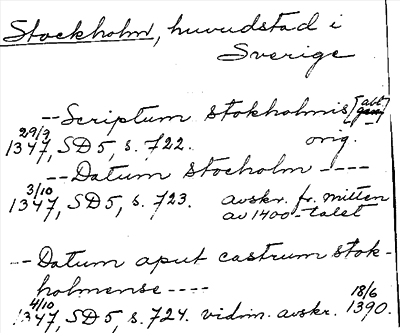 Stockholm, huvudstad i
Sverige
-- Scriptum stokholmis [alt.
29/9 orig.
1347, SD5, s. 722.
-- Datum stocholm ----
3/10
1347, SD5, s. 723. avskr. fr. mitten
av 1400-talet
-- Datum aput castrum stok-
holmense ----
4/10 18/6
1347, SD5, s. 724. vidim. avskr. 1390.